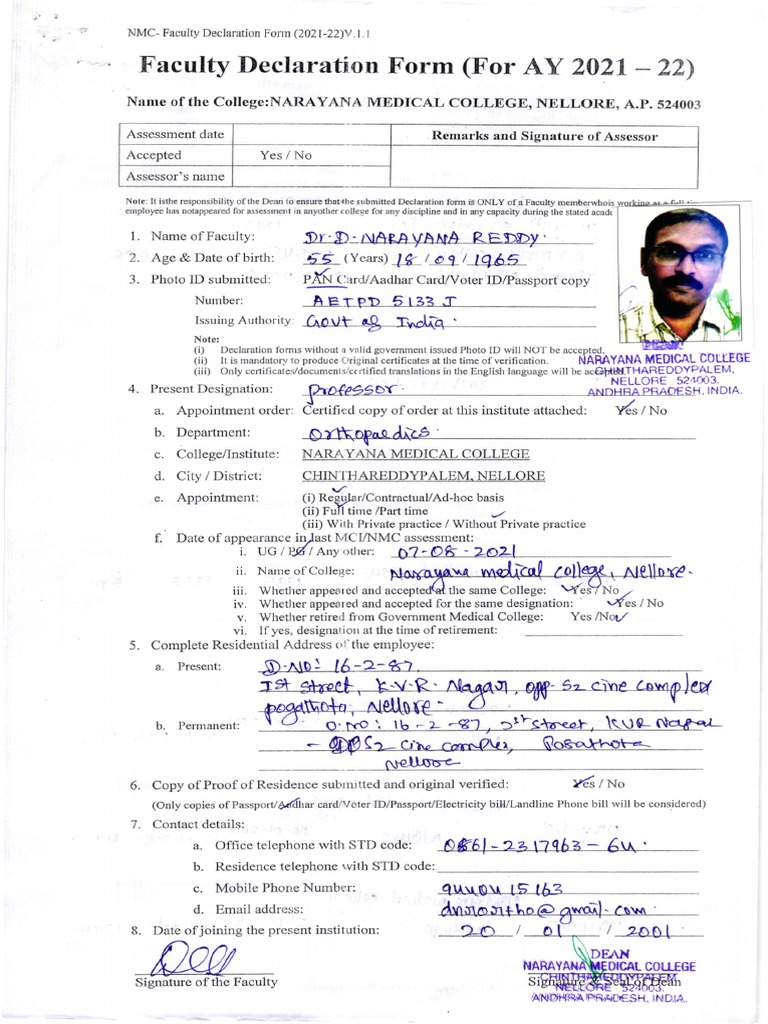 NMC- Faculty Declaration Form (2021-22)V.1.1
Faculty Declaration Form (For AY 2021 – 22)
Name of the College:NARAYANA MEDICAL COLLEGE, NELLORE, A.P. 524003
Assessment date
Remarks and Signature of Assessor
Accepted Yes / No
Assessor's name
Note: It istheresponsibility of the Dean to ensure that the submitted Declaration form is ONLY of a Faculty memberwhois working as a full
employee has notappeared for assessment in anyother college for any discipline and in any capacity during the stated acade
1. Name of Faculty: Dr. D. NARAYANA REDDY.
2. Age & Date of birth: 55 (Years) 18 / 09 / 1965
3. Photo ID submitted: PAN Card/Aadhar Card/Voter ID/Passport copy
Number: AETPD 5133 J
Issuing Authority: Govt of India.
Note:
(i) Declaration forms without a valid government issued Photo ID will NOT be accepted.
(ii) It is mandatory to produce Original certificates at the time of verification.
(iii) Only certificates/documents/certified translations in the English language will be
DEAN
NARAYANA MEDICAL COLLEGE
CHINTHAREDDYPALEM,
NELLORE 524003.
ANDHRA PRADESH, INDIA.
4. Present Designation: professor.
a. Appointment order: Certified copy of order at this institute attached: Yes / No
b. Department: Orthopaedics.
c. College/Institute: NARAYANA MEDICAL COLLEGE
d. City / District: CHINTHAREDDYPALEM, NELLORE
e. Appointment: (i) Regular/Contractual/Ad-hoc basis
(ii) Full time /Part time
(iii) With Private practice / Without Private practice
f. Date of appearance in last MCI/NMC assessment:
i. UG / PG / Any other: 07-08-2021
ii. Name of College: Narayana medical college, Nellore.
iii. Whether appeared and accepted at the same College: Yes / No
iv. Whether appeared and accepted for the same designation: Yes / No
v. Whether retired from Government Medical College: Yes /No
vi. If yes, designation at the time of retirement:
5. Complete Residential Address of the employee:
a. Present: D.NO: 16-2-87,
Ist street, K.V.R. Nagar, opp. S2 cine complex
pogathota, Nellore.
b. Permanent: D.NO: 16-2-87, street, KVR Nagar
S2 cine complex,
Nellore
6. Copy of Proof of Residence submitted and original verified: Yes / No
(Only copies of Passport/Aadhar card/Voter ID/Passport/Electricity bill/Landline Phone bill will be considered)
7. Contact details:
a. Office telephone with STD code: 0861-2317963-64.
b. Residence telephone with STD code:
c. Mobile Phone Number: 9440415163
d. Email address: dnrortho@gmail.com
8. Date of joining the present institution: 20 / 01 / 2001
DEAN
NARAYANA MEDICAL COLLEGE
CHINTHAREDDYPALEM
Signature of the Faculty Signature & Seal of Dean
NELLORE 524003.
ANDHRA PRADESH, INDIA.